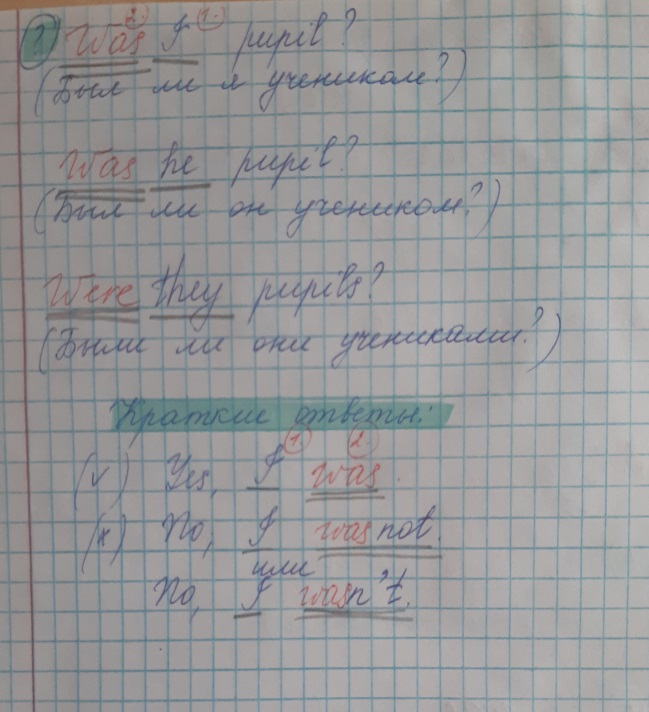 ? Was 2. I 1. pupil?
(Был ли я учеником?)
Was he pupil?
(Был ли он учеником?)
Were they pupils?
(Были ли они учениками?)
Краткие ответы:
1. 2.
(v) Yes, I was.
(x) No, I was not.
или
No, I wasn't.